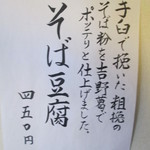 手臼で挽いた粗挽の
そば粉を吉野葛で
ポッテリと仕上げました。
そば豆腐
四五〇円